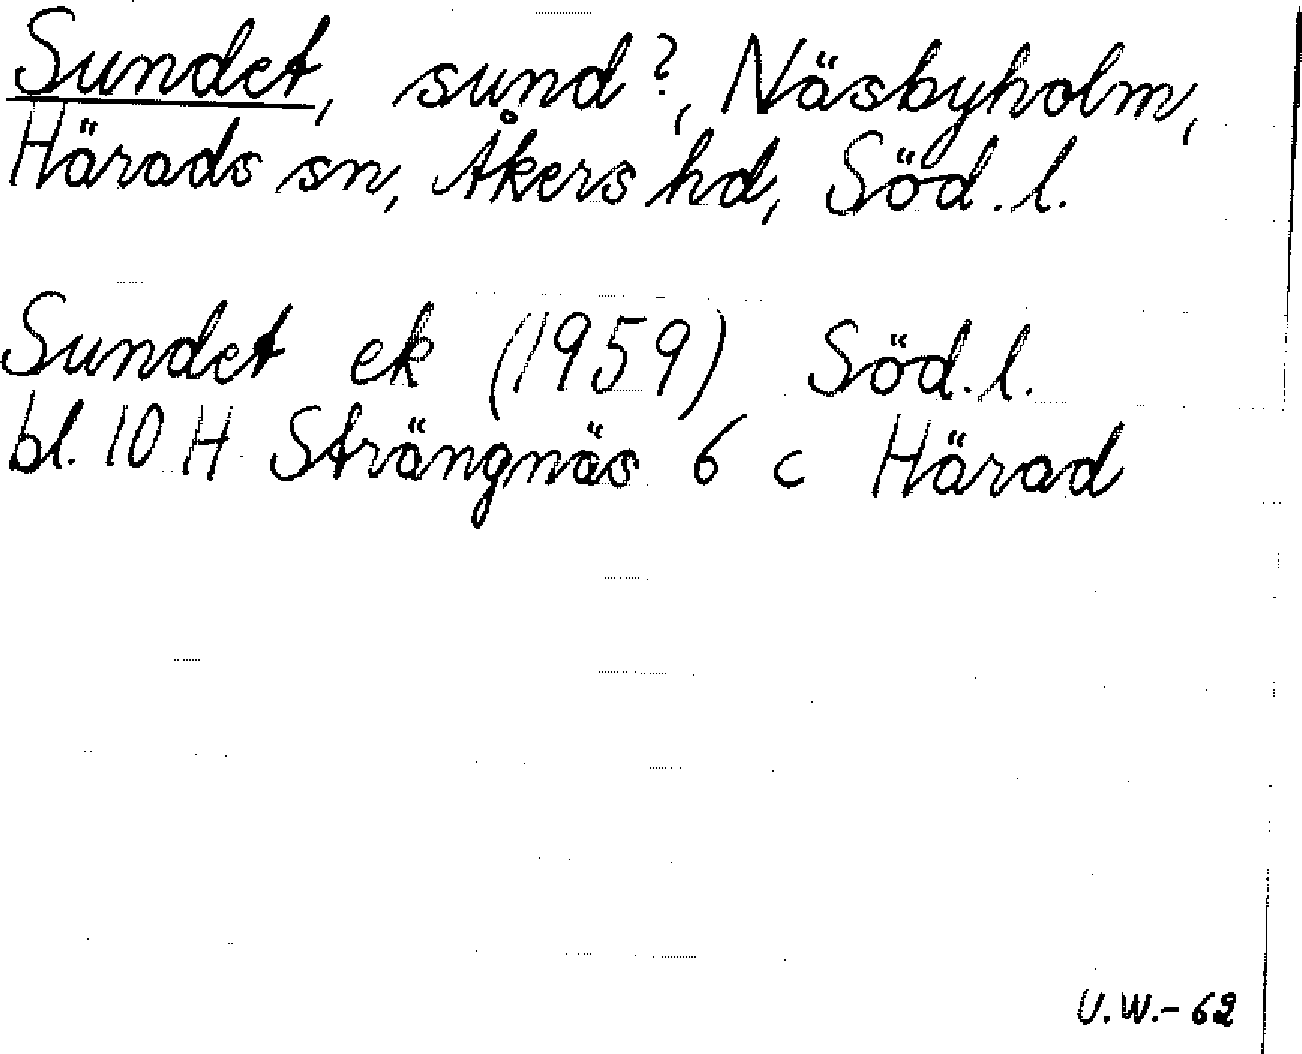 Sundet, sund?, Näsbyholm,
Härads sn, Åkers hd, Söd. l.
Sundet ek (1959) Söd. l.
bl. 10 H Strängnäs 6 c Härad
U.W.-62